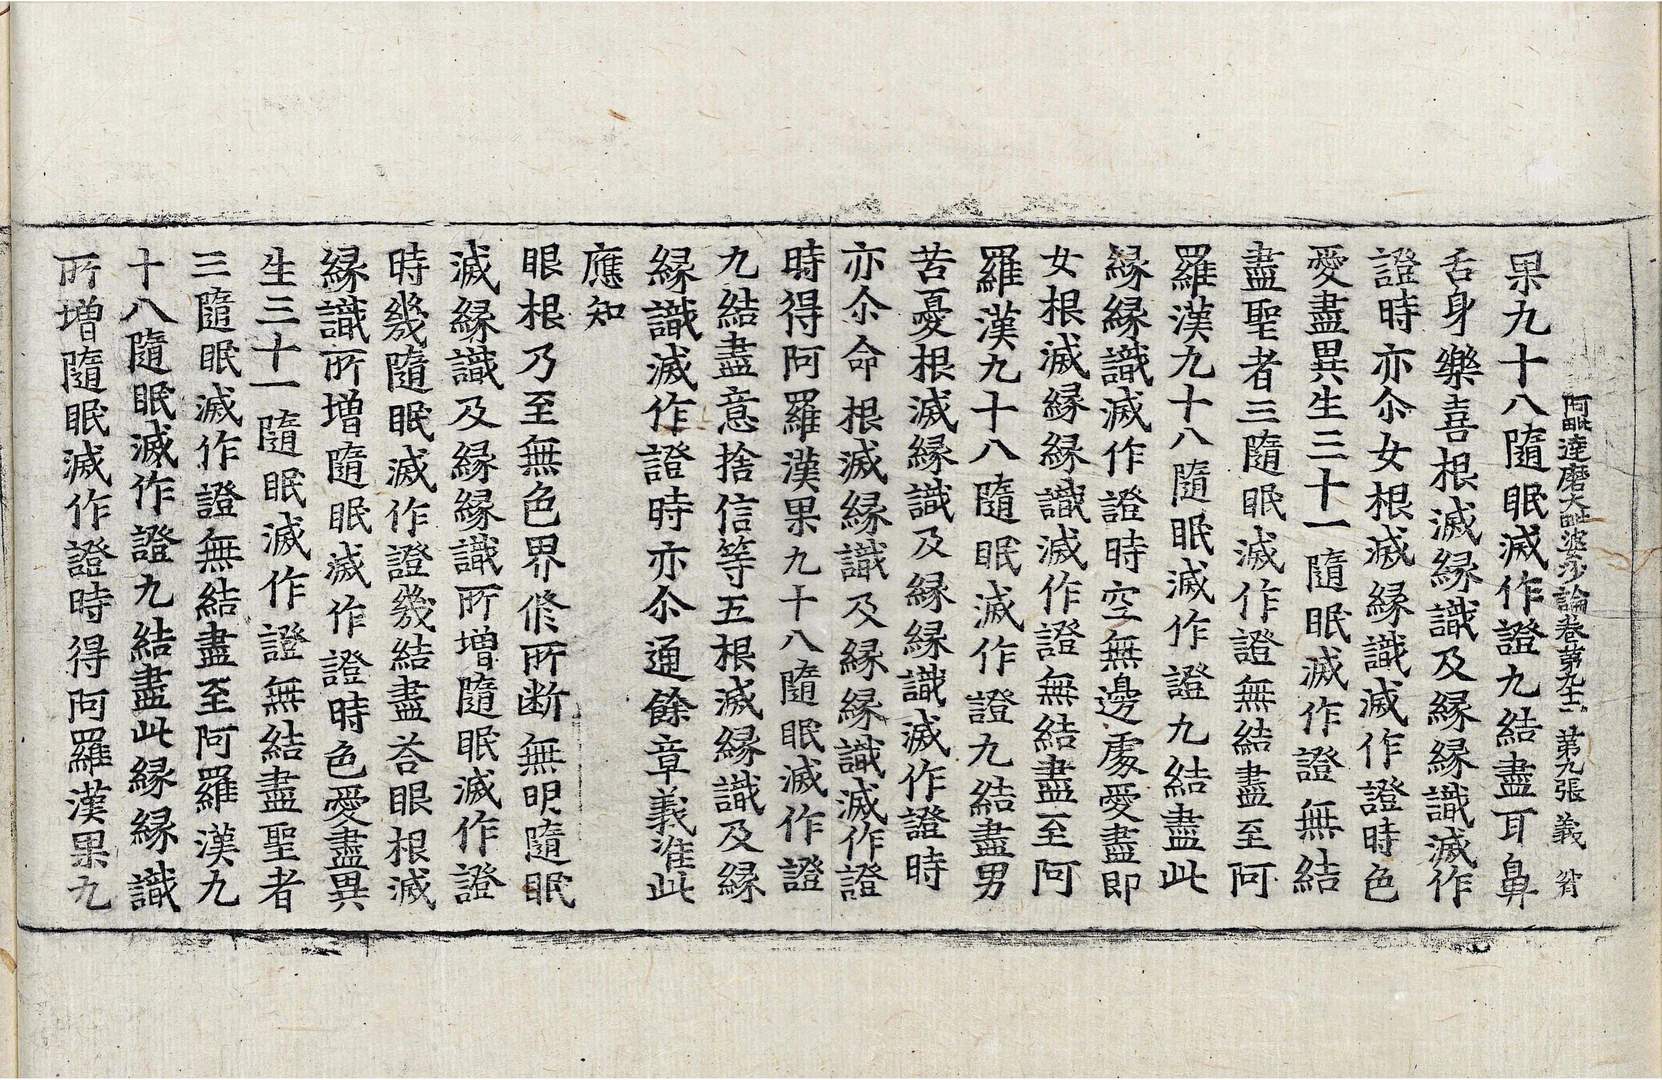 阿毗達磨大毗婆沙論卷第九十一 第九張 義
果九十八隨眠滅作證九結盡耳鼻
舌身樂喜根滅緣識及緣緣識滅作
證時亦尒女根滅緣識滅作證時色
愛盡異生三十一隨眠滅作證無結
盡聖者三隨眠滅作證無結盡至阿
羅漢九十八隨眠滅作證九結盡此
緣緣識滅作證時空無邊處愛盡即
女根滅緣緣識滅作證無結盡至阿
羅漢九十八隨眠滅作證九結盡男
苦憂根滅緣識及緣緣識滅作證時
亦尒命根滅緣識及緣緣識滅作證
時得阿羅漢果九十八隨眠滅作證
九結盡意捨信等五根滅緣識及緣
緣識滅作證時亦尒通餘章義准此
應知
眼根乃至無色界修所斷無明隨眠
滅緣識及緣緣識所增隨眠滅作證
時幾隨眠滅作證幾結盡荅眼根滅
緣識所增隨眠滅作證時色愛盡異
生三十一隨眠滅作證無結盡聖者
三隨眠滅作證無結盡至阿羅漢九
十八隨眠滅作證九結盡此緣緣識
所增隨眠滅作證時得阿羅漢果九